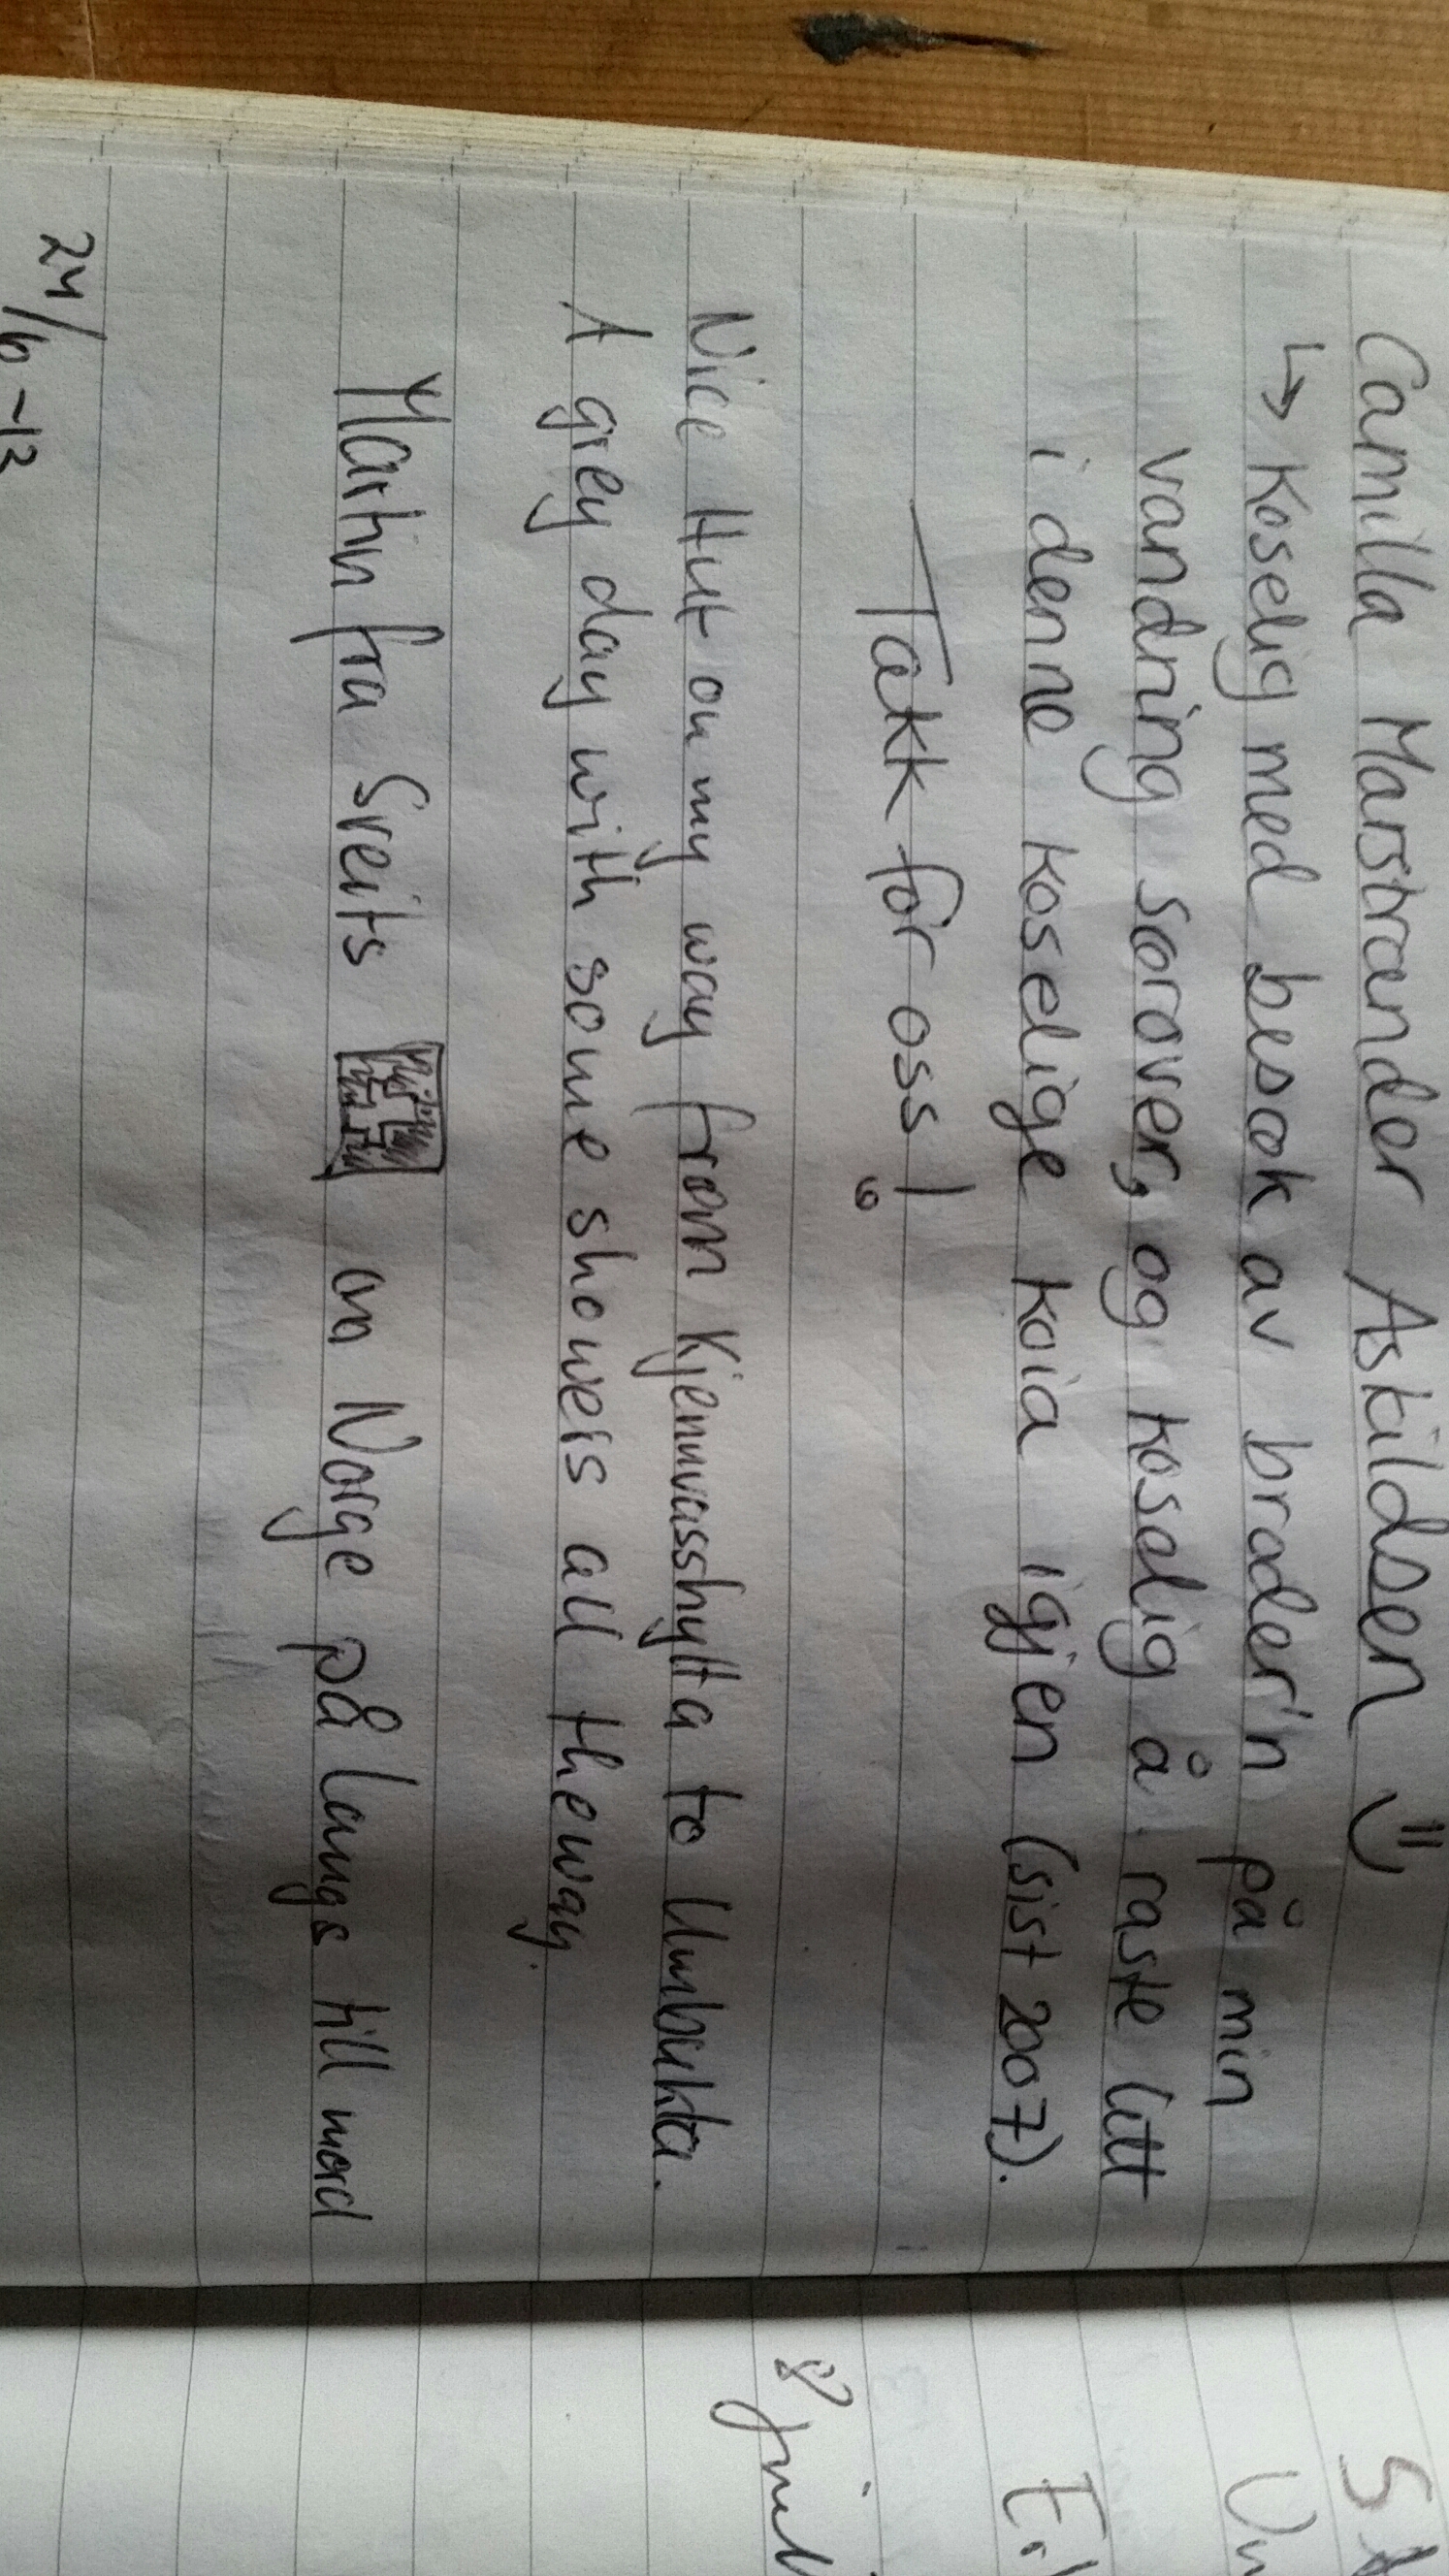 Camilla Marstrander Askildsen
↳ Koselig med besøk av broder'n på min
vandring sørover, og koselig å raste litt
i denne koselige koia igjen (sist 2007).
Takk for oss!
Nice Hut on my way from Kjennvasshytta to Umbukta.
A grey day with some showers all the way.
Martin fra Sveits on Norge på langs till nord
24/6-13
8 juli